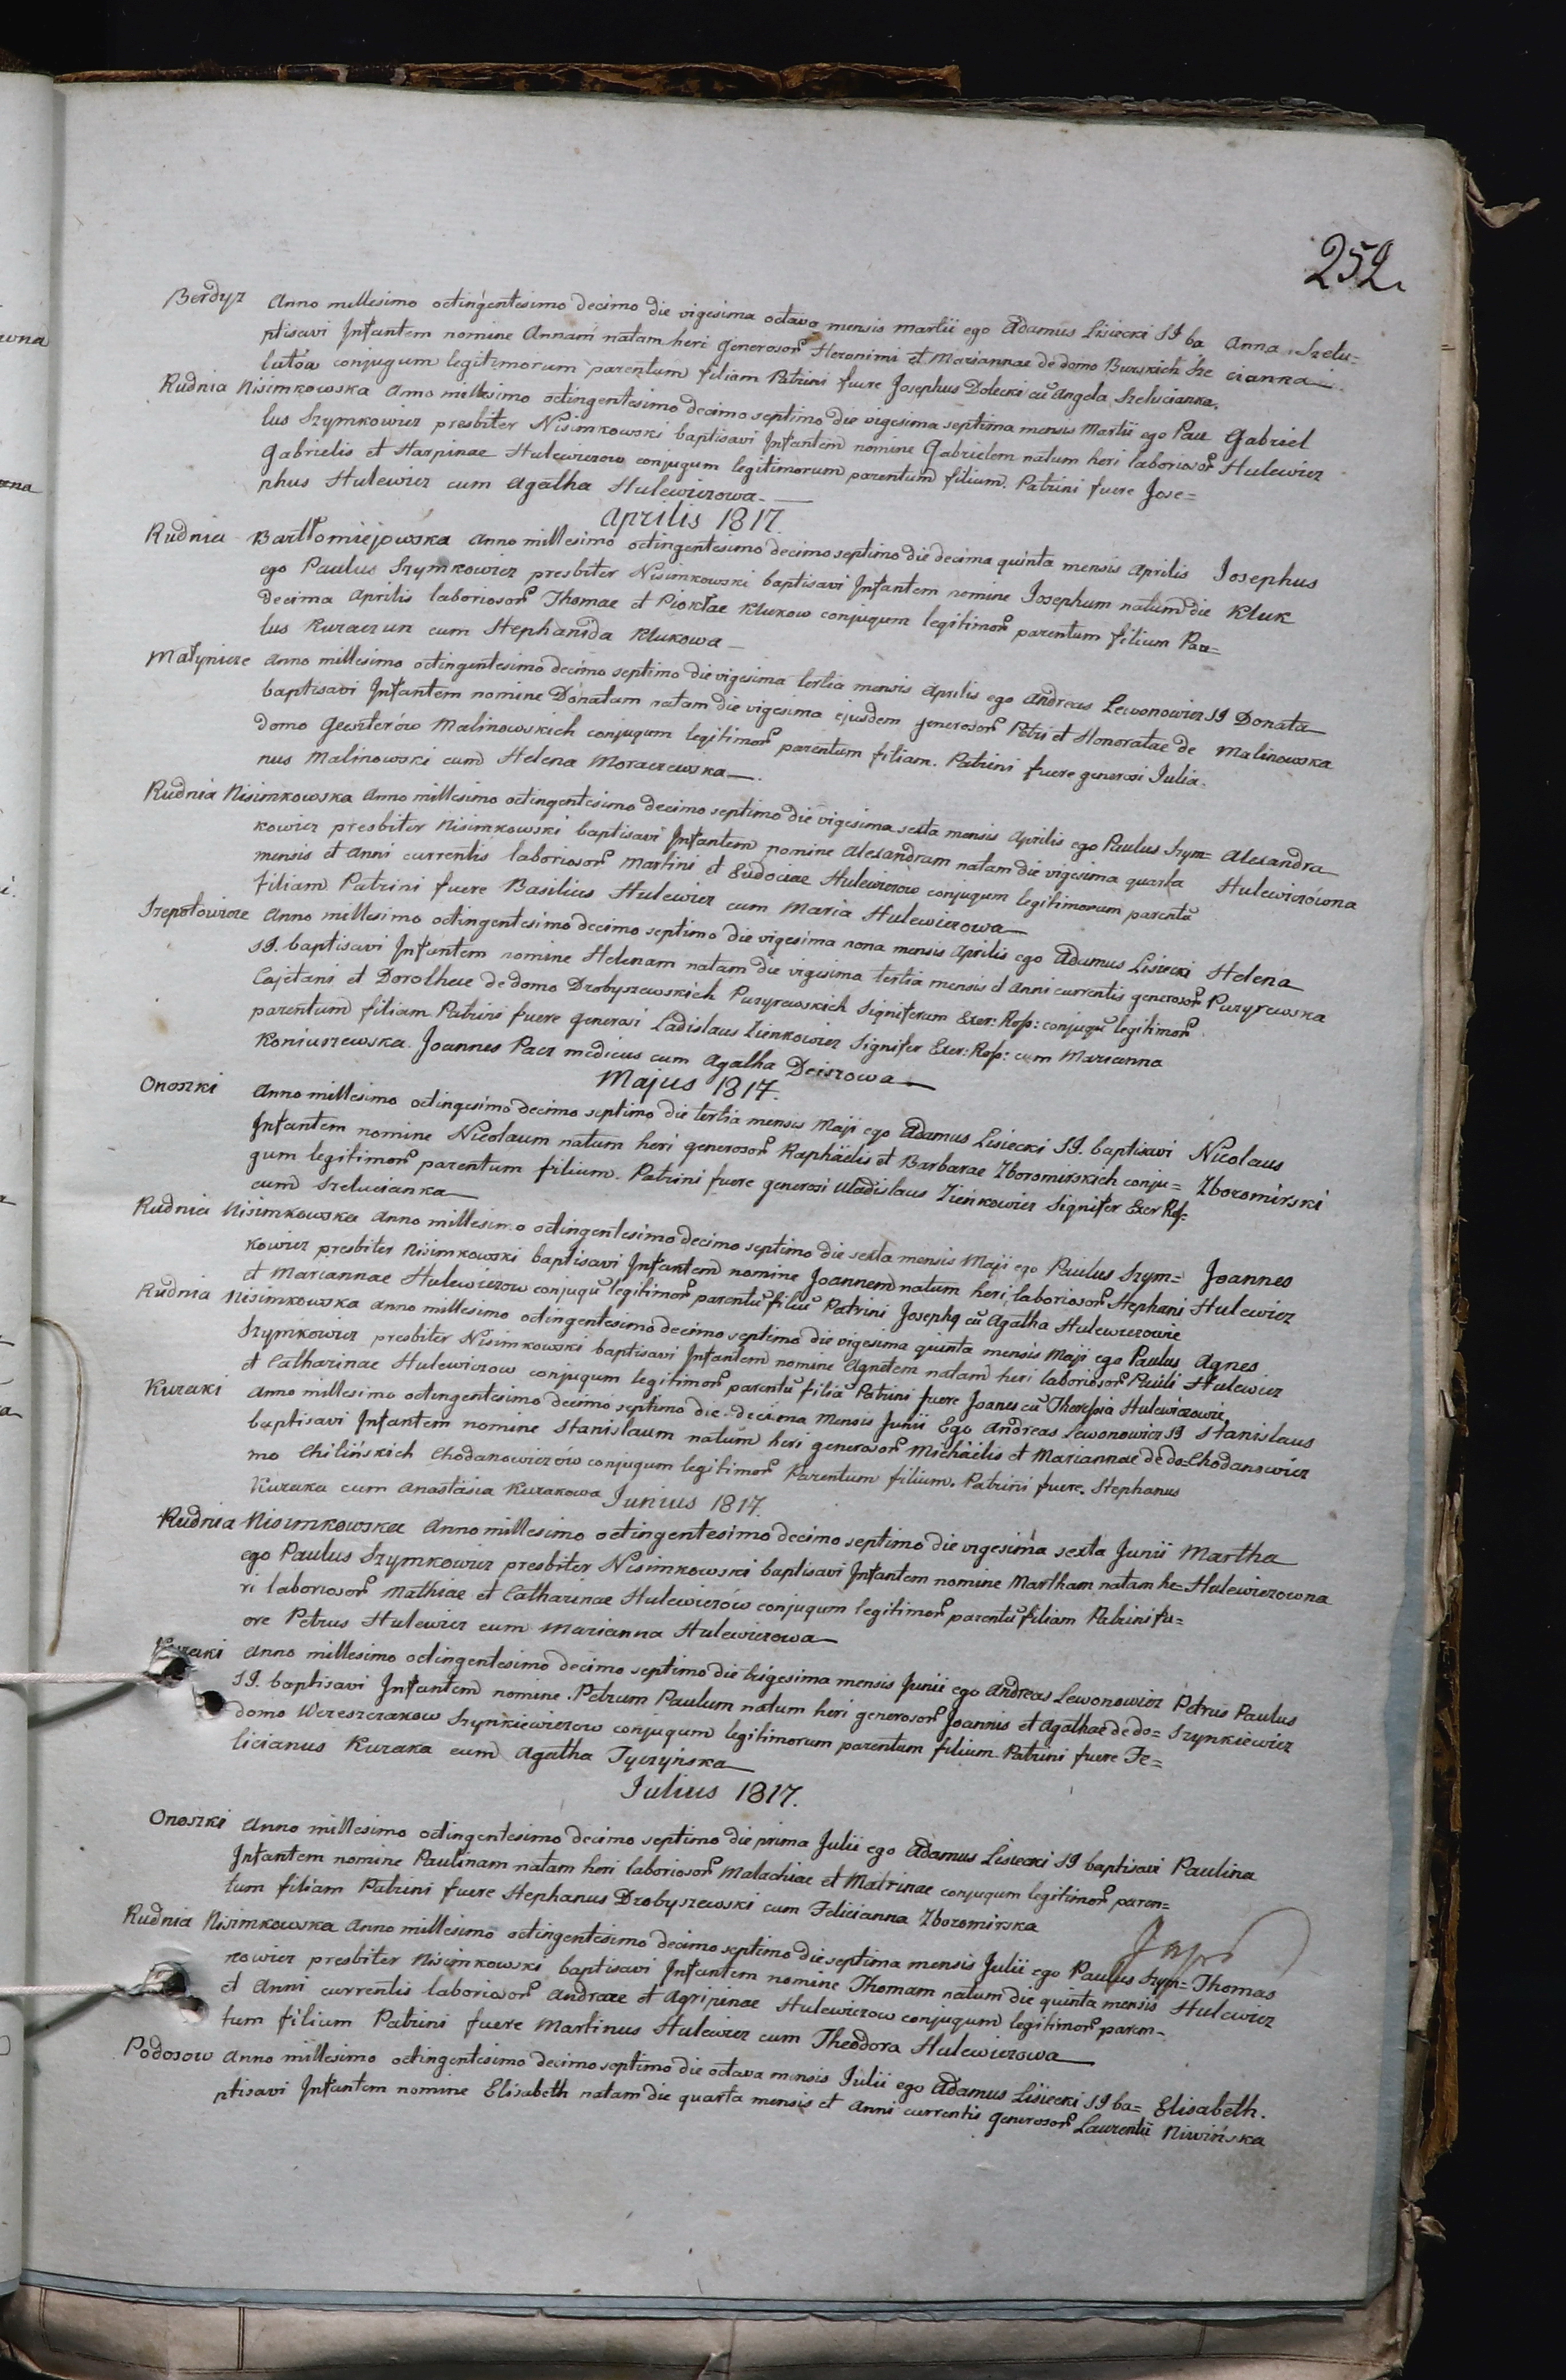 252.
Berdyz Anno millesimo octingentesimo decimo die vigesima octava mensis martii ego Adamus Lisiecki SJ ba Anna Szelu=
ptisavi Infantem nomine Annam natam heri generosor Heronimi et Mariannae de domo Burskich Sze cianka
lutów conjugum legitimorum parentum filiam Patrini fuere Josephus Dolecki cu Angela Szelucianka.
Rudnia Nisimkowska Anno millesimo octingentesimo decimo septimo die vigesima septima mensis Martii ego Pau Gabriel
lus Szymkowicz presbiter Nisimkowski baptisavi Infantem nomine Gabrielem natum heri laboriosor Hulewicz
Gabrielis et Harpinae Hulewiczow conjugum legitimorum parentum filium. Patrini fuere Jose=
phus Hulewicz cum Agatha Hulewiczowa.
Aprilis 1817.
Rudnia Bartłomiejowska Anno millesimo octingentesimo decimo septimo die decima quinta mensis Aprilis Josephus
ego Paulus Szymkowicz presbiter Nisimkowski baptisavi Infantem nomine Josephum natum die Kluk
decima Aprilis laboriosor Thomae et Piokłae Klukow conjugum legitimor parentum filium Pau=
lus Kuraczun cum Stephanida Klukowa
Małynicze Anno millesimo octingentesimo decimo septimo die vigesima tertia mensis Aprilis ego Andreas Lewonowicz SJ Donata
baptisavi Infantem nomine Donatam natam die vigesima ejusdem generosor Petri et Honoratae de Malinowska
domo Gewzterów Malinowskich conjugum legitimor parentum filiam. Patrini fuere generosi Julia.
nus Malinowski cum Helena Moraczewska.
Rudnia Nisimkowska Anno millesimo octingentesimo decimo septimo die vigesima sexta mensis Aprilis ego Paulus Szym= Alexandra
kowicz presbiter Nisimkowski baptisavi Infantem nomine Alexandram natam die vigesima quarta Hulewiczówna
mensis et Anni currentis laboriosor Martini et Eudociae Hulewiczów conjugum legitimorum parentu
filiam Patrini fuere Basilius Hulewicz cum Maria Hulewiczowa
Szepotowicze Anno millesimo octingentesimo decimo septimo die vigesima nona mensis Aprilis ego Adamus Lisiecki Helena
SJ. baptisavi Infantem nomine Helenam natam die vigesima tertia mensis et anni currentis generosor Puzyrewska
Cajetani et Dorotheae de domo Drobyszewskich Puzyrewskich Signiferum Exer: Rosp: conjugu legitimor
parentum filiam Patrini fuere Generosi Ladislaus Zienkowicz Signifer Exer: Rosp: cum Marianna
Koniuszewska. Joannes Pacz medicus cum Agatha Deiszowa
Majus 1817.
Onoszki Anno millesimo octingesimo decimo septimo die tertia mensis Maji ego Adamus Lisiecki SJ. baptisavi Nicolaus
Infantem nomine Nicolaum natum heri generosor Raphaelis et Barbarae Zboromirskich conju= Zboromirski
gum legitimor parentum filium. Patrini fuere generosi Wladislaus Zieńkowicz Signifer Exer Rosp:
cum Szelucianka
Rudnia Nisimkowska Anno millesimo octingentesimo decimo septimo die sexta mensis Maji ego Paulus Szym= Joannes
kowicz presbiter Nisimkowski baptisavi Infantem nomine Joannem natum heri laboriosor Stephani Hulewicz
et Mariannae Hulewiczow conjugu legitimor parentu filiu Patrini Josephq cu Agatha Hulewiczowie
Rudnia Nisimkowska Anno millesimo octingentesimo decimo septimo die vigesima quinta mensis Maji ego Paulus Agnes
Szymkowicz presbiter Nisimkowski baptisavi Infantem nomine Agnetem natam heri laboriosor Pauli Hulewicz
et Catharinae Hulewiczow conjugum legitimor parentu filia Patrini fuere Joanes cu Theresia Hulewiczowie
Kuzaki Anno millesimo octingentesimo decimo septimo die decima mensis Junii Ego Andreas Lewonowicz SJ Stanislaus
baptisavi Infantem nomine Stanislaum natum heri generosor Michaelis et Mariannae de do= Chodanowicz
mo Chilińskich Chodanowiczów conjugum legitimor Parentum filium. Patrini fuere. Stephanus
Kuzaka cum Anastasia Kuzakowa Junius 1817.
Rudnia Nisimkowska Anno millesimo octingentesimo decimo septimo die vigesima sexta Junii Martha
ego Paulus Szymkowicz presbiter Nisimkowski baptisavi Infantem nomine Martham natam he= Hulewiczowna
ri laboriosor Mathiae et Catharinae Hulewiczów conjugum legitimor parentu filiam Patrini fu=
ere Petrus Hulewicz cum Marianna Hulewiczowa
Kuzaki Anno millesimo octingentesimo decimo septimo die trigesima mensis Junii ego Andreas Lewonowicz Petrus Paulus
SJ. baptisavi Infantem nomine Petrum Paulum natum heri generosor Joannis et Agathae de do= Szynkiewicz
domo Wereszczakow Szynkiewiczow conjugum legitimorum parentum filium Patrini fuere Fe=
licianus Kuzaka cum Agatha Tyczyńska
Julius 1817.
Onoszki Anno millesimo octingentesimo decimo septimo die prima Julii ego Adamus Lisiecki SJ baptisavi Paulina
Infantem nomine Paulinam natam heri laboriosor Malachiae et Matrinae conjugum legitimor paren=
tum filiam Patrini fuere Stephanus Drobyszewski cum Felicianna Zboromirska
Rudnia Nisimkowska Anno millesimo octingentesimo decimo septimo die septima mensis Julii ego Paulus Szym= Thomas
kowicz presbiter Nisimkowski baptisavi Infantem nomine Thomam natum die quinta mensis Hulewicz
et Anni currentis laboriosor Andraee et Agripinae Hulewiczow conjugum legitimor paren-
tum filium Patrini fuere Martinus Hulewicz cum Theodora Hulewiczowa
Podosow Anno millesimo octingentesimo decimo septimo die octava mensis Julii ego Adamus Lisiecki SJ ba= Elisabeth.
ptisavi Infantem nomine Elisabeth natam die quarta mensis et Anni currentis generosor Laurentii Niwińska